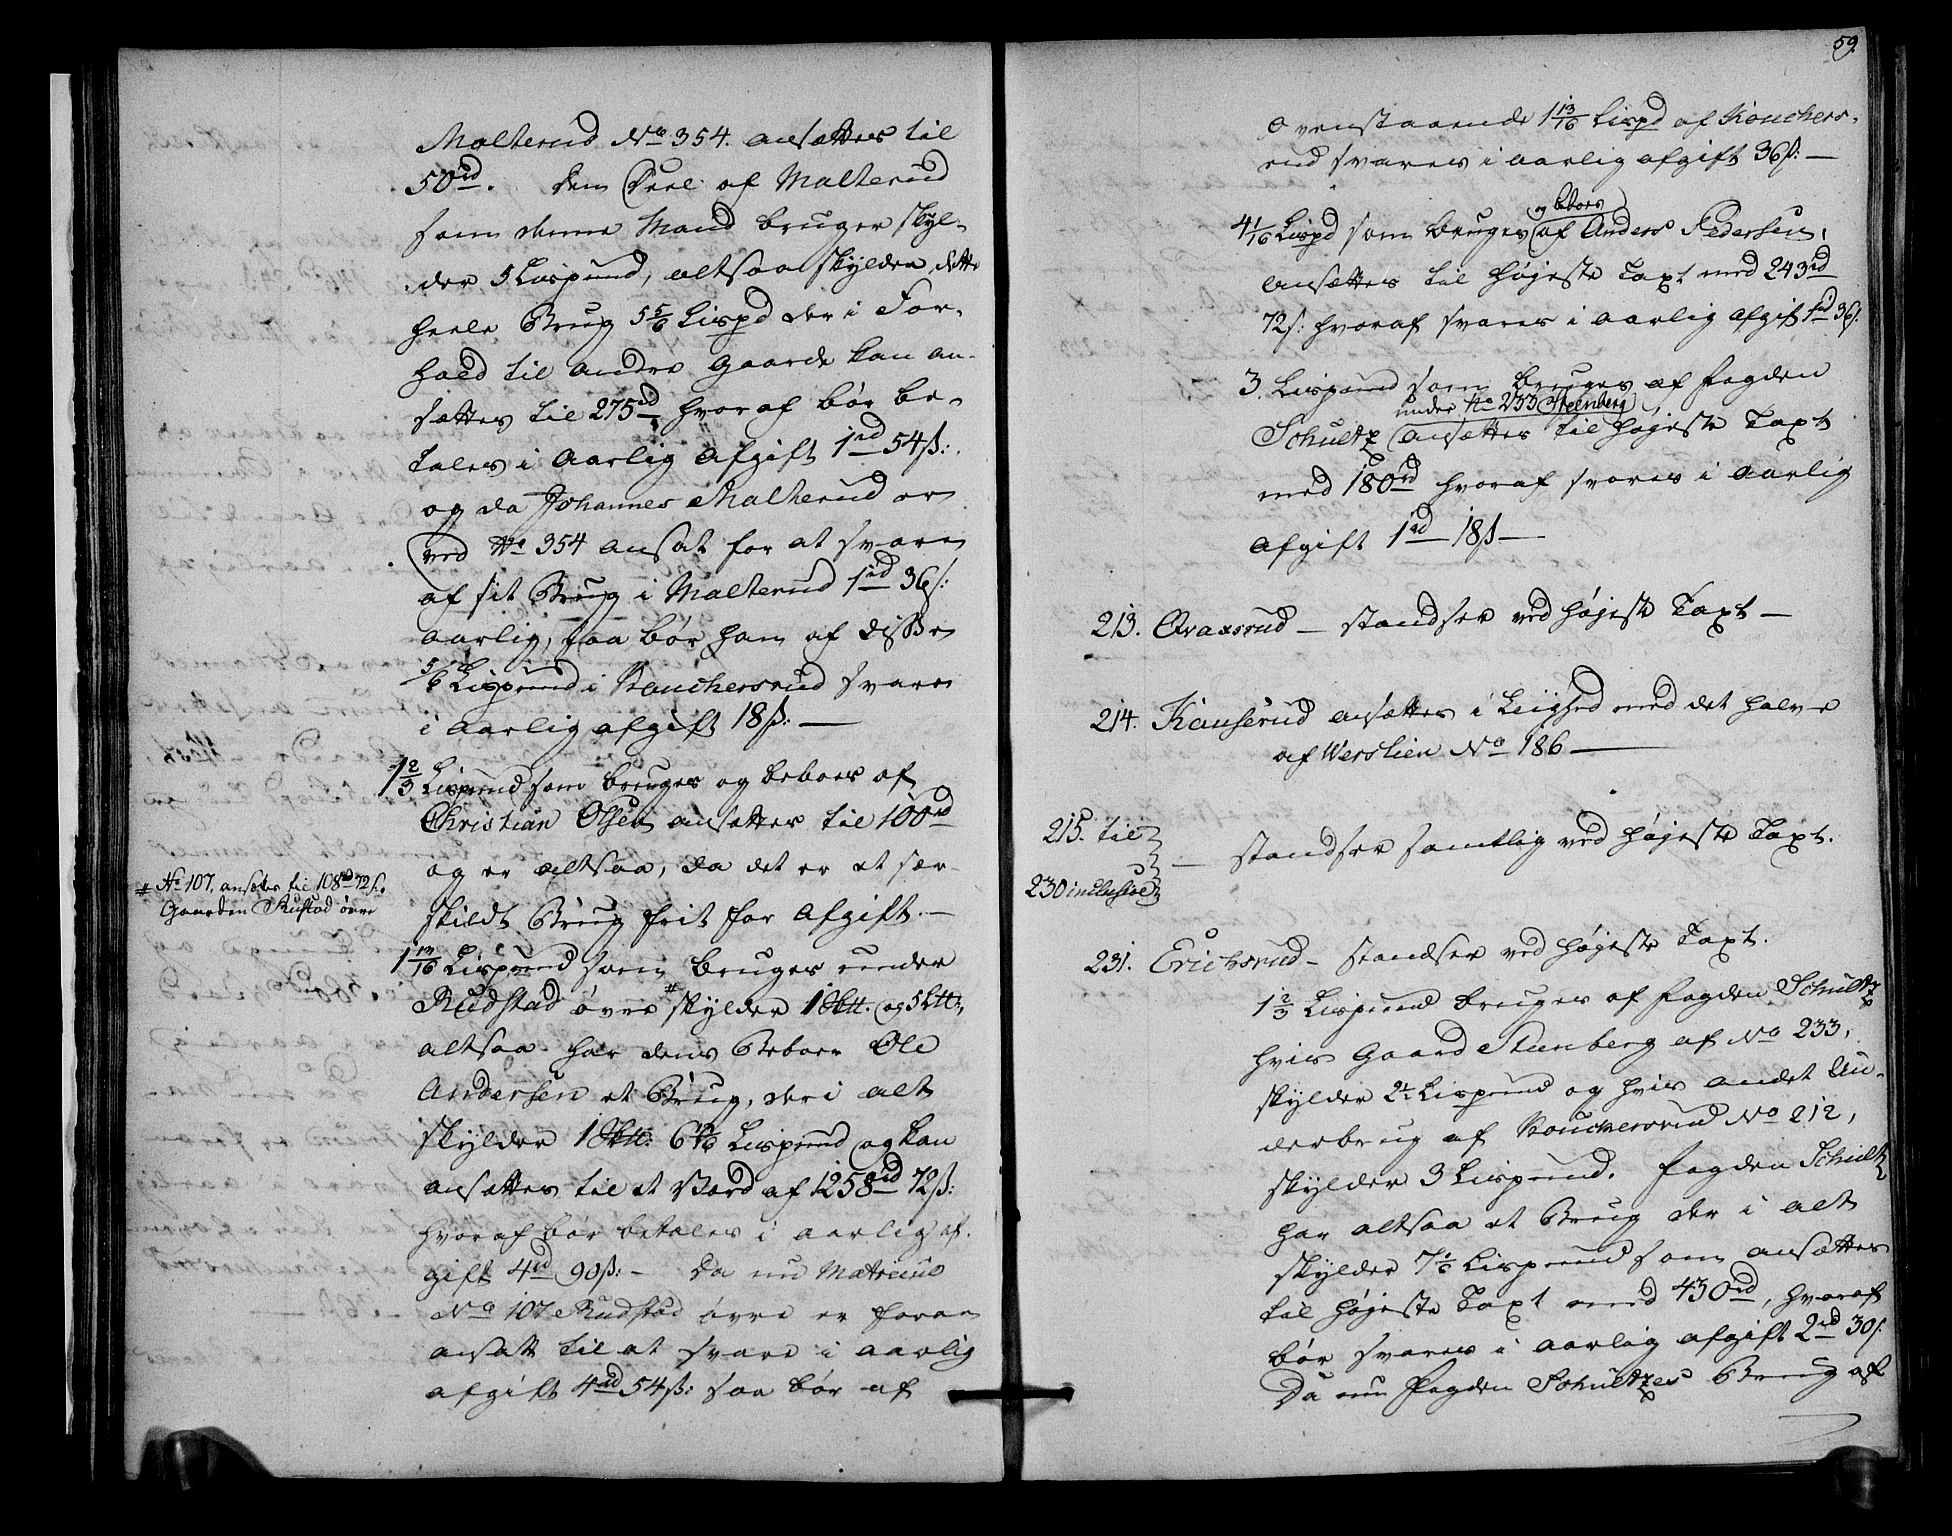 Malterud No 354. ansættes til
50rd. Den Deel af Malterud
som denne Mand bruger skyl-
der 5 Lispund, altsaa skylder dette
heele Brug 5 5/6 Lispd der i For-
hold til andre Gaarde kan an-
sættes til 275rd hvoraf bør be-
tales i Aarlig Afgift 1rd 54ß:
og da Johannes Malterud er
ved No 354 ansat for at svare
af sit Brug i Malterud 1rd 36ß:
aarlig, saa bør han af disse
5/6 Lispund i Rouchersrud svare
i aarlig afgift 18ß: —
1 2/3 Lispund som bruges og beboes af
Christian Olsen ansættes til 100rd
og er altsaa, da det er et sær-
skildt Brug frit for Afgift. —
1 13/16 Lispund som bruges under
Rudstad øvre # skylder 1 Sktt. og 5 Ltt:,
altsaa har dens Beboer Ole
Andersen et Brug, der i alt
skylder 1 Sktt: 6 13/16 Lispund og kan
ansættes til et Værd af 1258rd 72ß:
hvoraf bør betales i aarlig af-
gift 4rd 90ß: — Da nu Matricul
No 107 Rudstad øvre er foran
ansatt til at svare i aarlig
afgift 4rd 54ß: saa bør af
# No 107. ansættes til 1080rd 72ß.
Gaarden Rustad øvre
59.
Ovenstaaende 1 13/16 Lispd af Rouchers-
rud svares i aarlig afgift 36ß: —
4 1/16 Lispd som bruges og beboes af Anders Pedersen,
ansættes til højeste Taxt med 243rd
72ß: hvoraf svares i aarlig Afgift 1rd 36ß.
3 Lispund som bruges af Fogden
Schultz under No 233 Steenberg ansættes til højeste Taxt
med 180rd hvoraf svares i aarlig
Afgift 1rd 18ß —
213. Qvaxsrud — standser ved højeste Taxt —
214. Kanserud ansættes i Liighed med det halve
af Werslien No 186 —
215. til
230 inclusive — standser samtlig ved højeste Taxt.
231. Erichsrud — standser ved højeste Taxt.
1 2/3 Lispund bruges af Fogden Schultz
hvis Gaard Stenberg af No 233,
skylder 2 1/2 Lispund og hvis andet Un-
derbrug af Rouchersrud No 212,
skylder 3 Lispund. Fogden Schultz
har altsaa et Brug der i alt
skylder 7 1/6 Lispund som ansættes
til højeste Taxt med 430rd, hvoraf
bør svares i aarlig afgift 2rd 30ß.
Da nu Fogden Schultzes Brug af